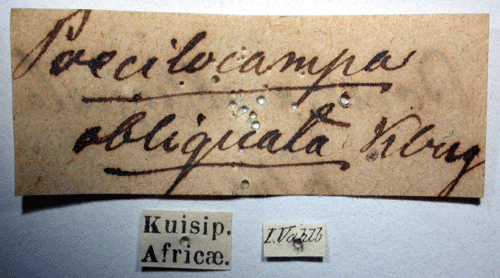 Poecilocampa
obliquata Klug
Kuisip.
Africæ.
I.Vahlb